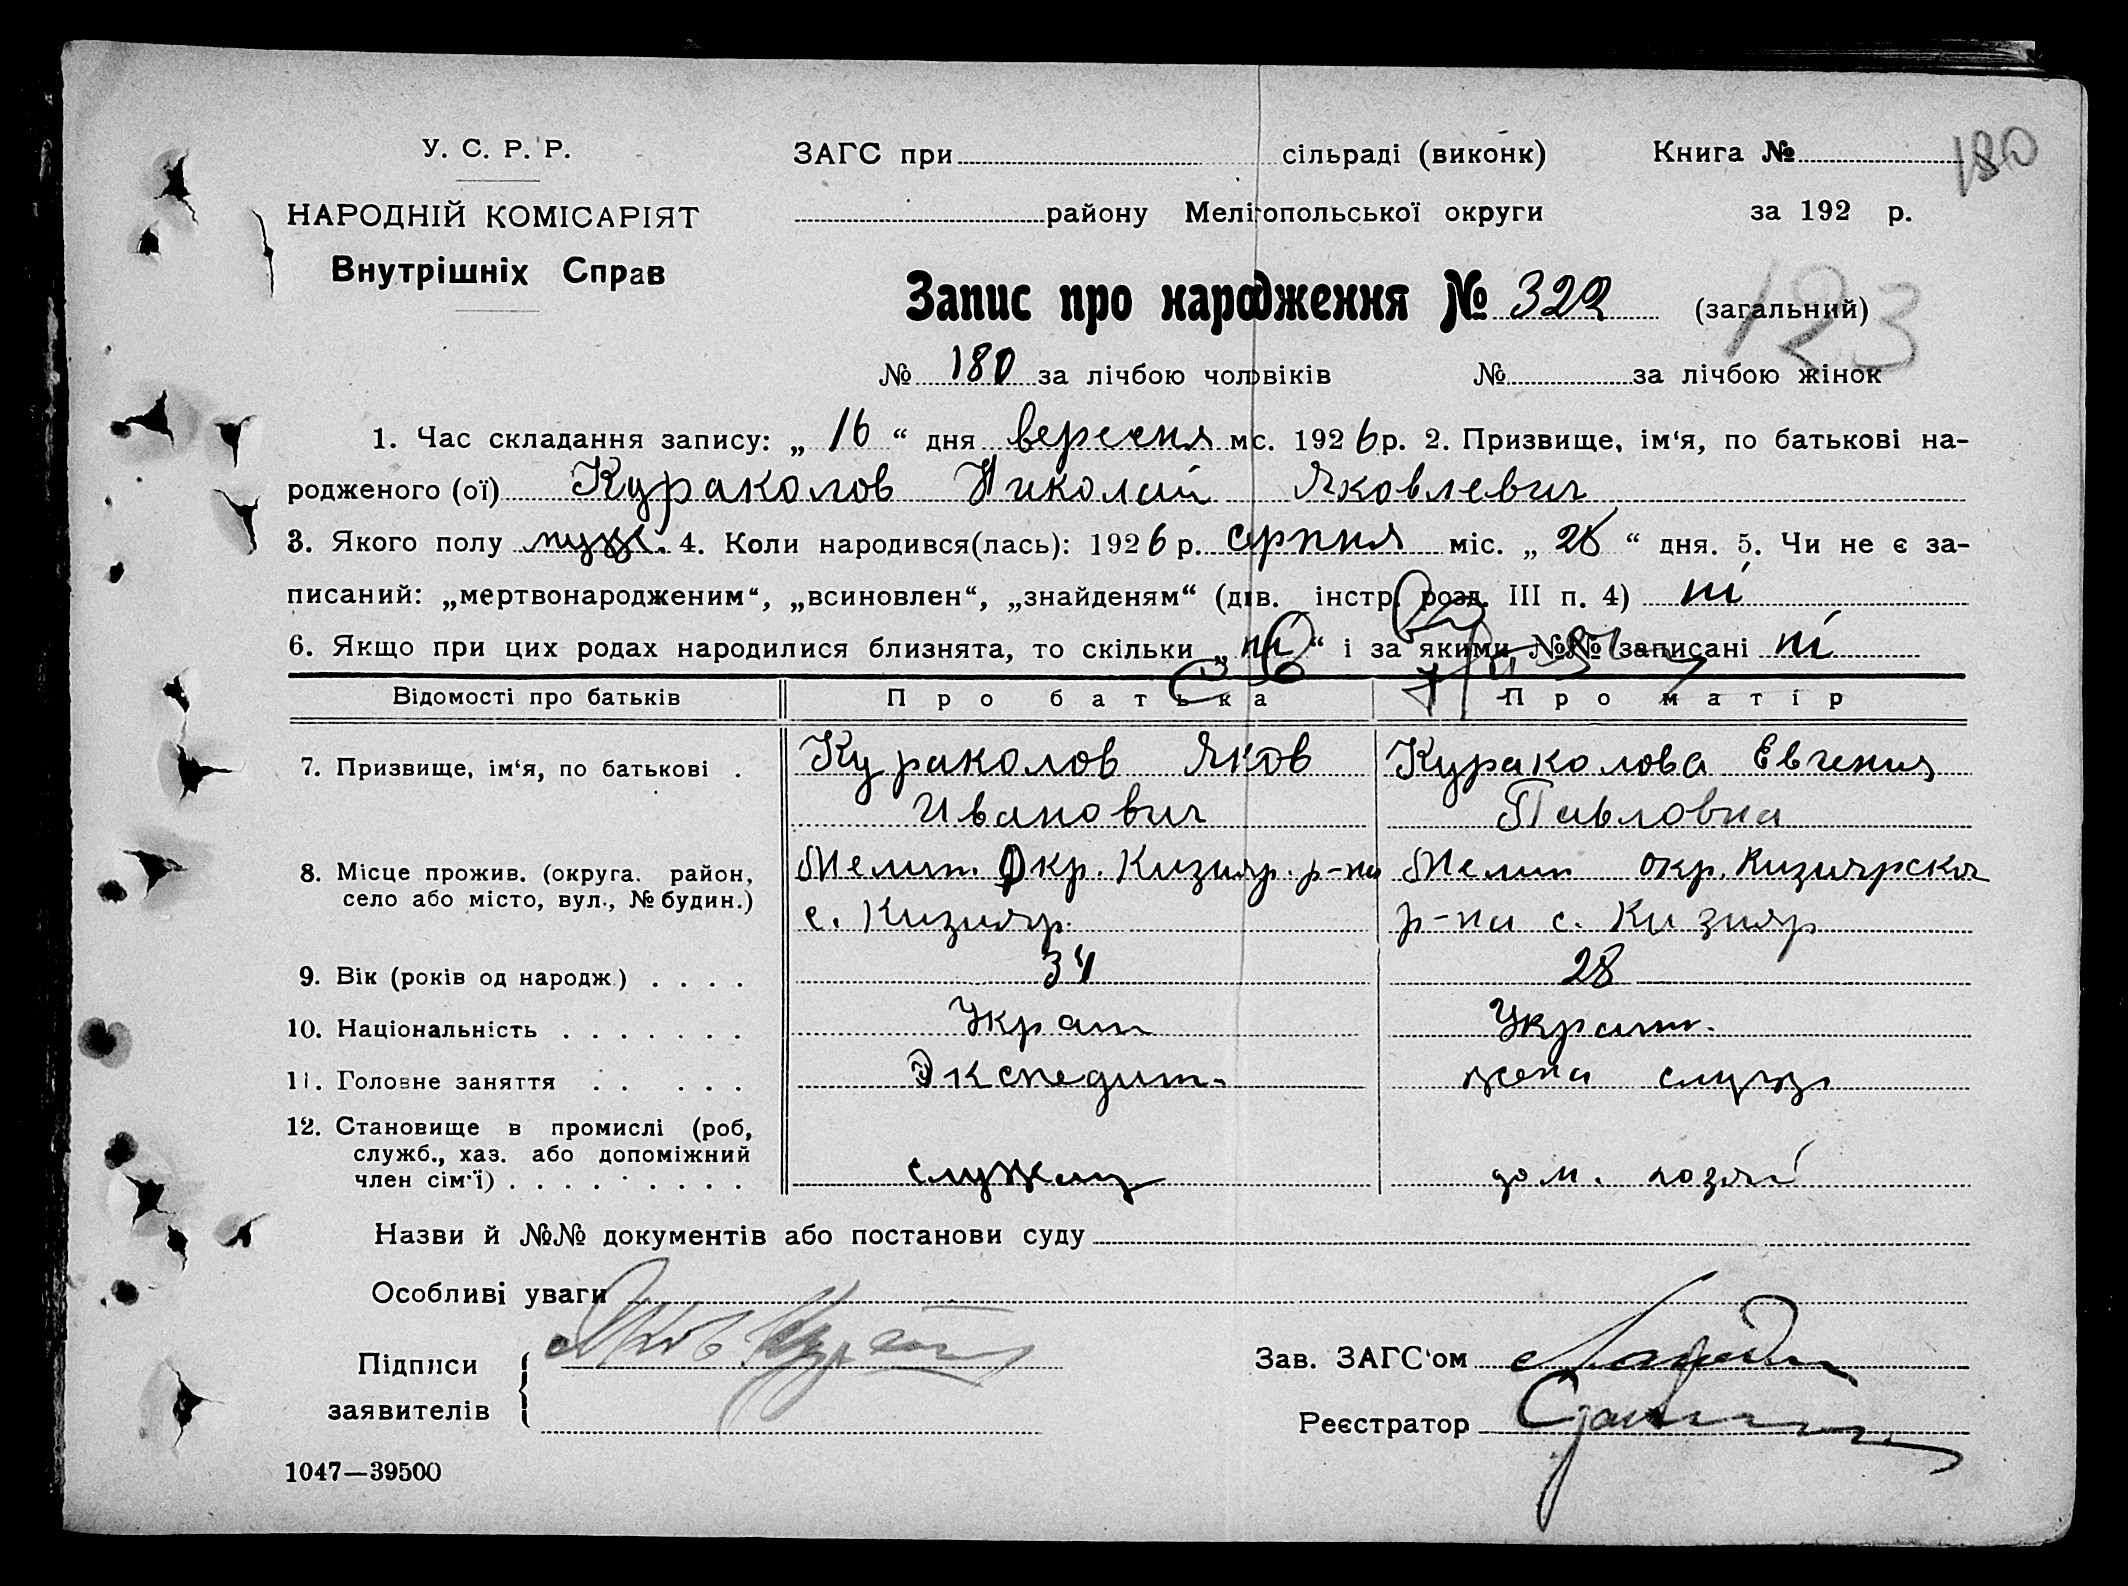 У. С. Р. Р.
ЗАГС при сільраді (виконк) Книга № 180
НАРОДНІЙ КОМІСАРІЯТ
району Мелітопольської округи за 192 р.
Внутрішніх Справ
Запис про народження № 322 (загальний)
123
№ 180 за лічбою чоловіків № за лічбою жінок
1. Час складання запису: „ 16 “ дня вересня мс. 1926 р. 2. Призвище, ім‘я, по батькові на-
родженого (ої) Кураколов Николай Яковлевич
3. Якого полу муж. 4. Коли народився(лась): 1926 р. серпня міс. „ 28 “ дня. 5. Чи не є за-
писаний: „мертвонародженим“, „всиновлен“, „знайденям“ (див. інстр. розд. III п. 4) ні
6. Якщо при цих родах народилися близнята, то скільки „ ні “ і за якими №№ записані ні
Відомості про батьків Про батька Про матір
7. Призвище, ім‘я, по батькові . Кураколов Яков Кураколова Евгения
Иванович Павловна
8. Місце прожив. (округа. район, Мелит. Окр. Кизияр. р-на Мелит окр. Кизиярскоя
село або місто, вул., № будин.) с. Кизияр. р-на с. Кизияр
9. Вік (років од народж.) . . . . 34 28
10. Національність . . . . . . . Украт Украин.
11. Головне заняття . . . . . Экспедит. жена служ
12. Становище в промислі (роб,
служб., хаз. або допоміжний
член сім‘ї) . . . . . . . . . служащ дом. хозяй
Назви й №№ документів або постанови суду
Особливі уваги
Підписи Яков
Зав. ЗАГС‘ом
заявителів
Реєстратор
1047—39500